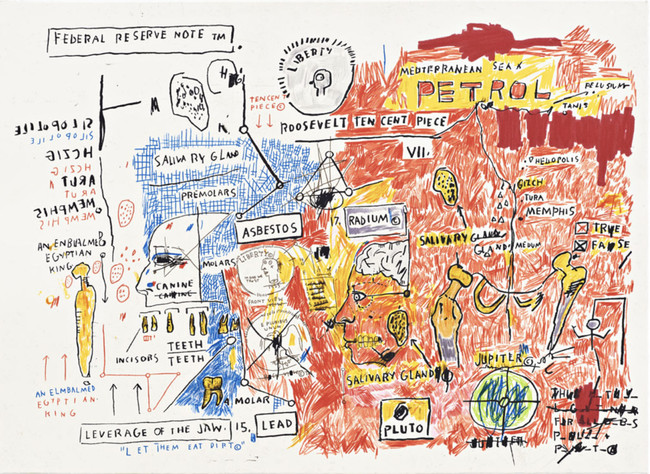 FEDERAL RESERVE NOTE TM
LIBERTY
TENCENT
PIECE©
ROOSEVELT TEN CENT PIECE
VII.
MEDTERRANEAN SEA
PETROL
PELUSIUM
TANIS
PHELOPOLIS
GIZCH
TURA
MEMPHIS
MEDUM
TRUE
FALSE
SALIVARY GLAND
PREMOLARS
ASBESTOS
17.
RADIUM ©
SALIVARY GLAND
MEMPHIS
MEMPHIS
AN EMBALMED
EGYPTIAN
KING
MOLARS
CANINE
CANINE
LIBERTY
FRONT VIEW
E PLURIBUS
UNUM
INCISORS
TEETH
TEETH
SALIVARY GLAND
JUPITER©
AN ELMBALMED
EGYPTIAN-
KING
A MOLAR
LEVERAGE OF THE JAW.
15,
LEAD
"LET THEM EAT DIRT©"
PLUTO